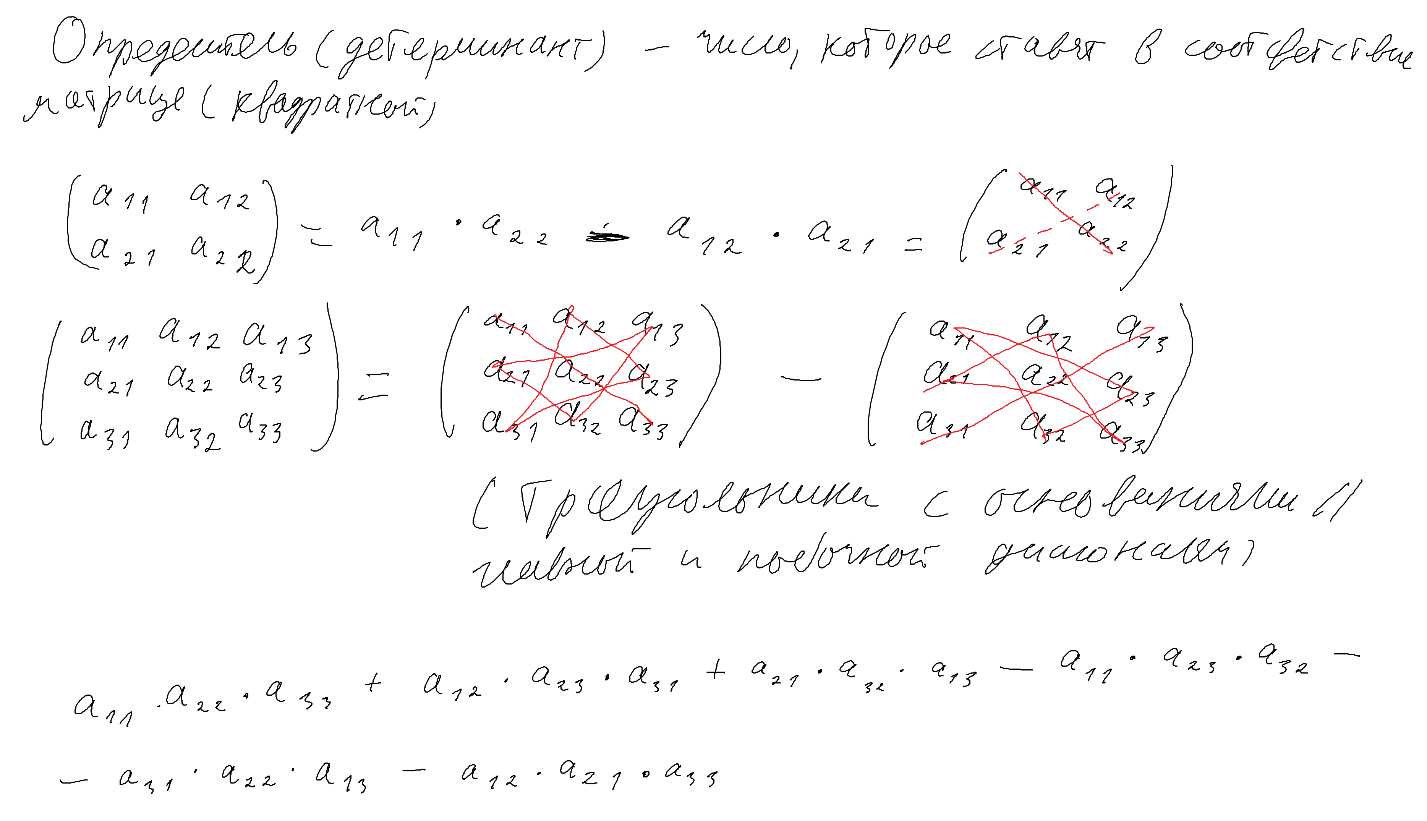 Определитель (детерминант) — число, которое ставят в соответствие
матрице (квадратной)
(a₁₁ a₁₂
a₂₁ a₂₂) = a₁₁ · a₂₂ - a₁₂ · a₂₁ = (a₁₁ a₁₂
a₂₁ a₂₂)
(a₁₁ a₁₂ a₁₃
a₂₁ a₂₂ a₂₃
a₃₁ a₃₂ a₃₃) = (a₁₁ a₁₂ a₁₃
a₂₁ a₂₂ a₂₃
a₃₁ a₃₂ a₃₃) — (a₁₁ a₁₂ a₁₃
a₂₁ a₂₂ a₂₃
a₃₁ a₃₂ a₃₃)
(Треугольники с основаниями //
главной и побочной диагонали)
a₁₁ · a₂₂ · a₃₃ + a₁₂ · a₂₃ · a₃₁ + a₂₁ · a₃₂ · a₁₃ — a₁₁ · a₂₃ · a₃₂ —
— a₃₁ · a₂₂ · a₁₃ — a₁₂ · a₂₁ · a₃₃